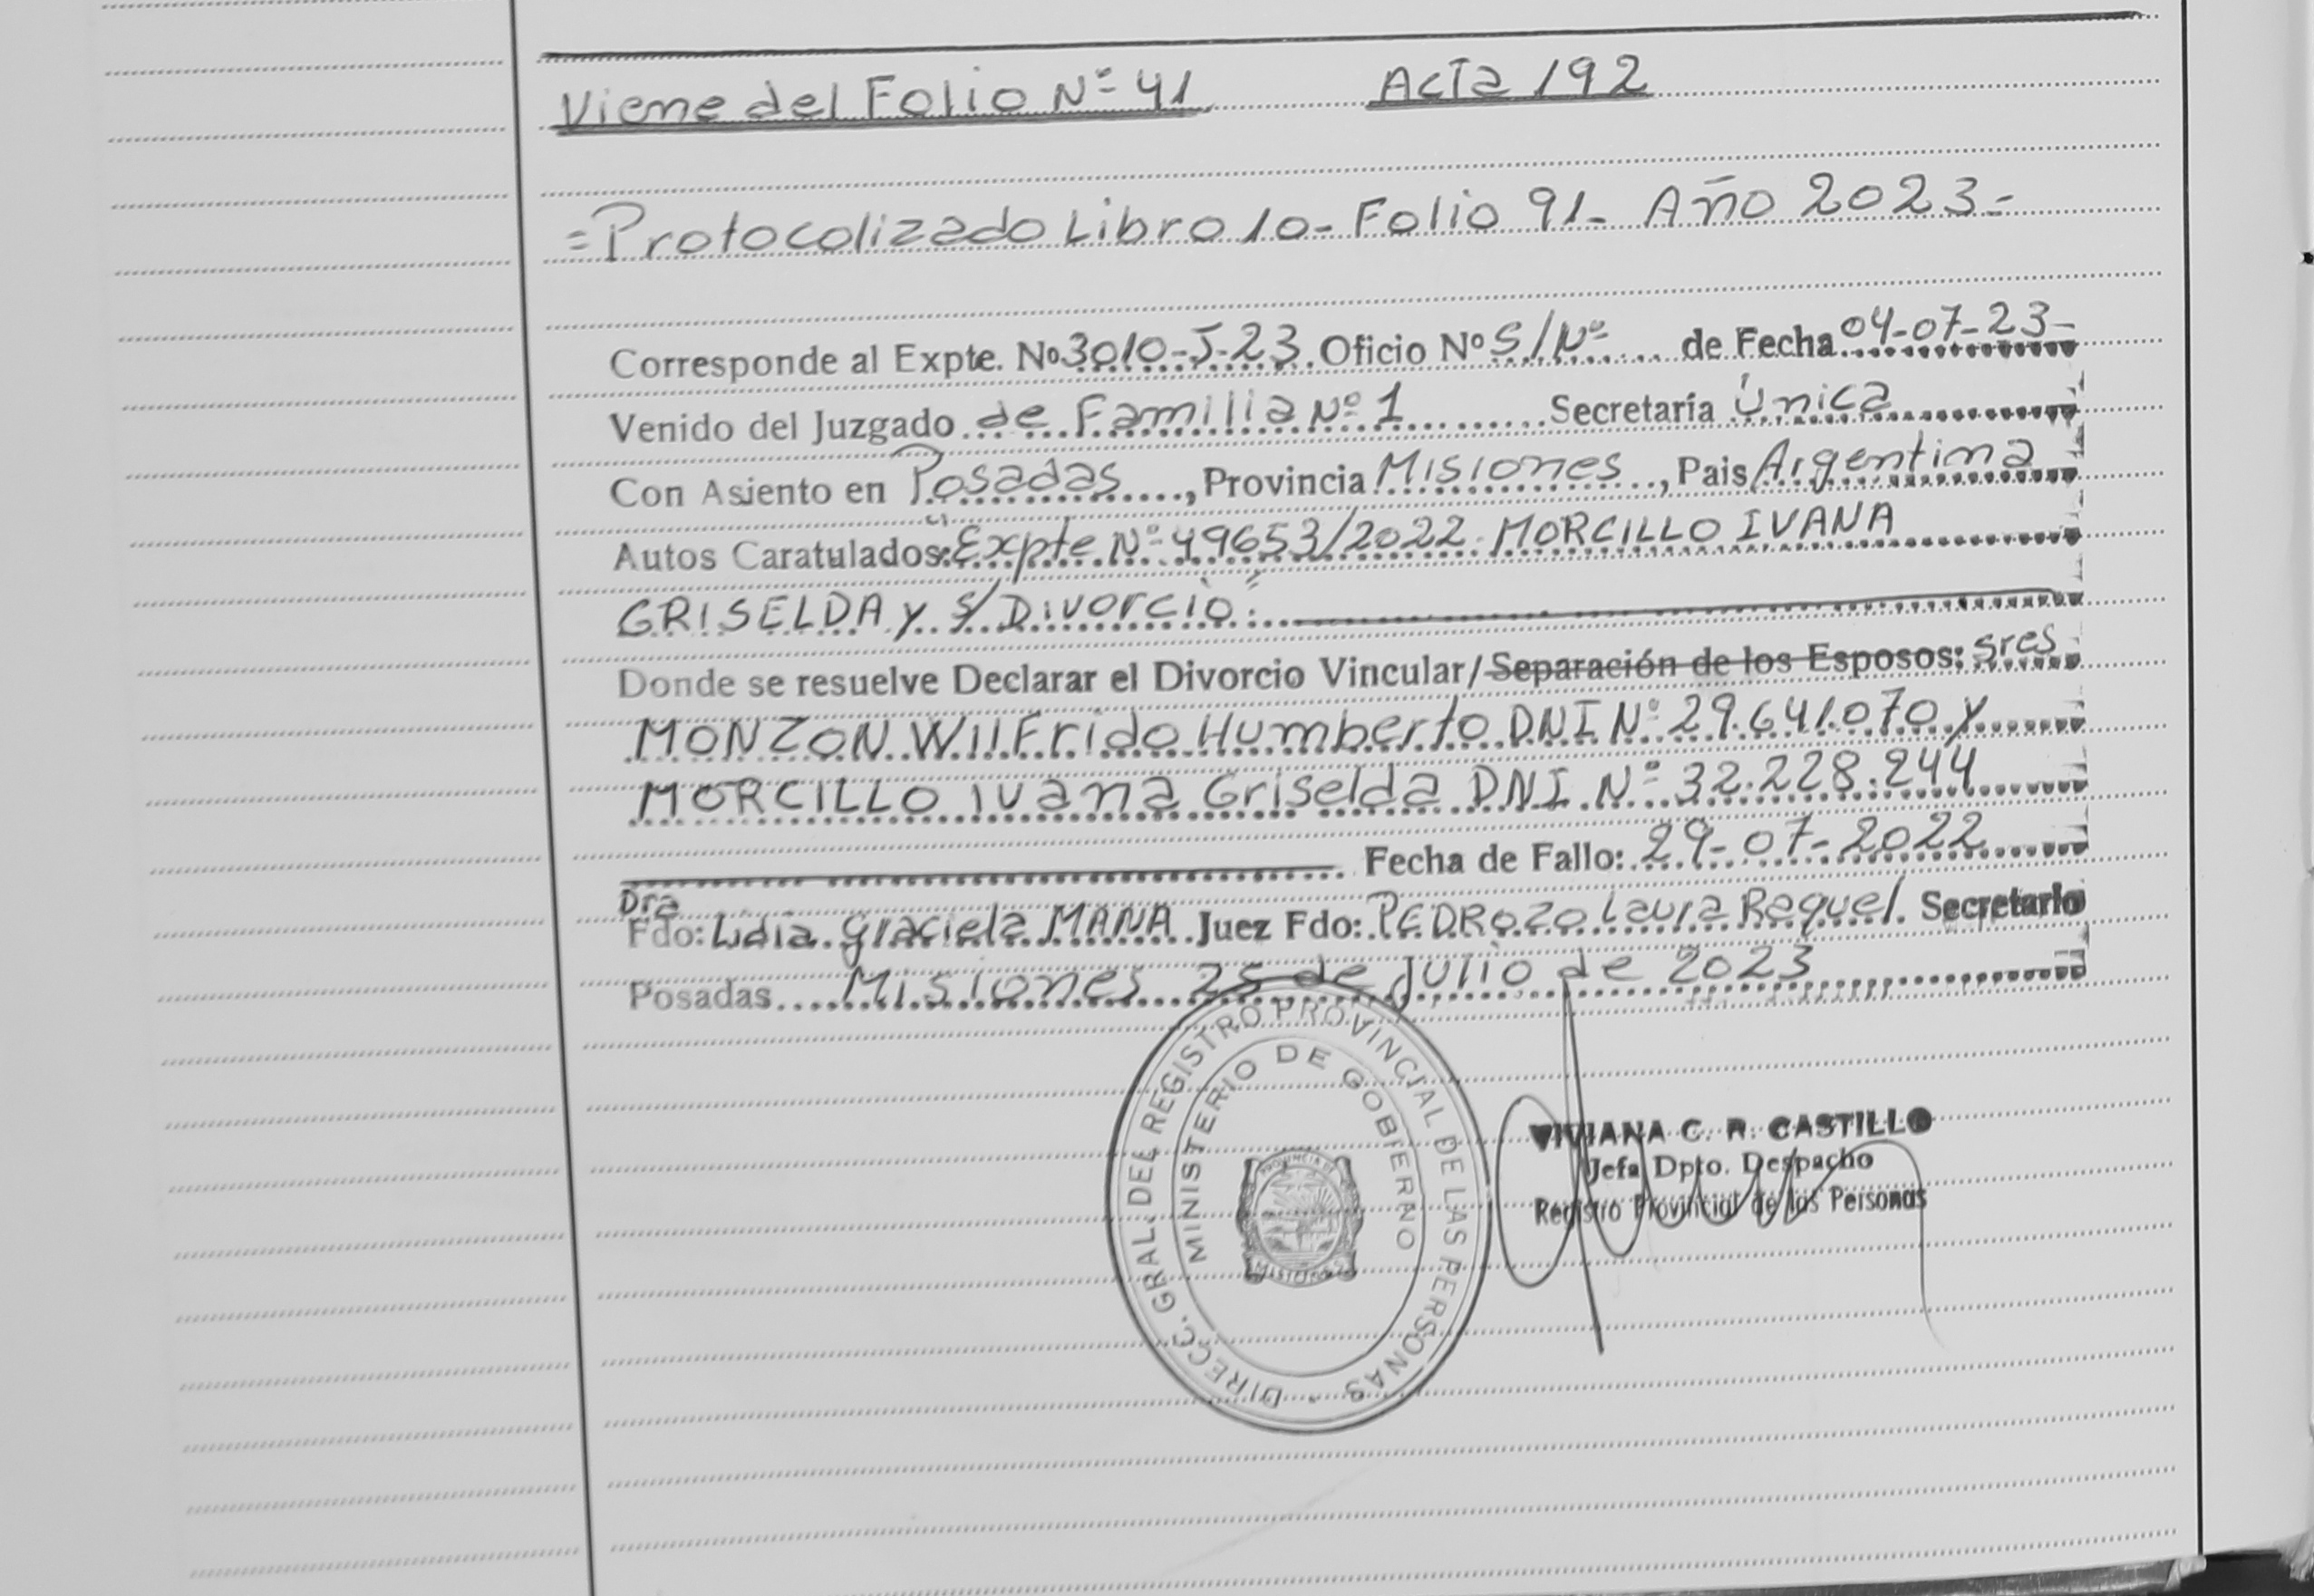 Viene del Folio Nº 41 Acta 192
=Protocolizado Libro 10- Folio 91- Año 2023-
Corresponde al Expte. Nº 3010-J-23. Oficio Nº S/Nº de Fecha 04-07-23-
Venido del Juzgado de Familia Nº 1 Secretaría Única
Con Asiento en Posadas, Provincia Misiones, Pais Argentina
Autos Caratulados: "Expte Nº 49653/2022. MORCILLO IVANA
GRISELDA y s/ Divorcio".
Donde se resuelve Declarar el Divorcio Vincular/Separación de los Esposos: sres
MONZON Wilfrido Humberto DNI Nº 29.641.070 y
MORCILLO Ivana Griselda DNI. Nº 32.228.244
Fecha de Fallo: 29-07-2022
Dra
Fdo: Lidia Graciela MANA. Juez Fdo: PEDROZO Laura Raquel. Secretario
Posadas Misiones 25 de julio de 2023
DIRECC. GRAL. DEL REGISTRO PROVINCIAL DE LAS PERSONAS
MINISTERIO DE GOBIERNO
PROVINCIA DE
MISIONES
VIVIANA C. R. CASTILLO
Jefa Dpto. Despacho
Registro Provincial de las Personas